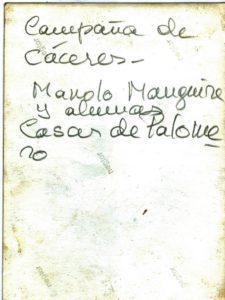 Campaña de
Cáceres-
Manolo Manguire
y alumnas
Casar de Palome
ro